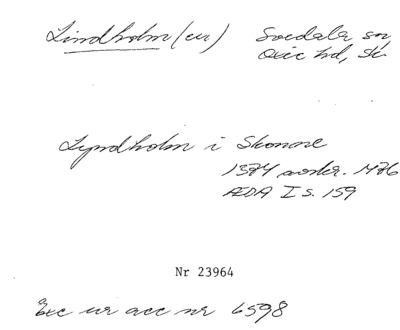 Lindholm (en) Svedala sn,
Oxie hd, Sk
Lyndholm i Skonne
1374 avskr. 1476
ÆDA I s. 159
Nr 23964
Exc ur acc nr 6598